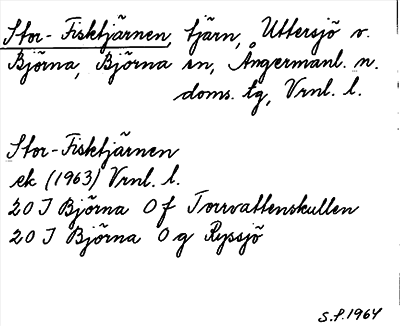 Stor-Fisktjärnen, tjärn, Uttersjö v.
Björna, Björna sn, Ångermanl. n.
doms. tg, Vrnl. l.
Stor-Fisktjärnen
ek (1963) Vrnl. l.
20 I Björna 0 f Torrvattenskullen
20 I Björna 0 g Ryssjö
S.f. 1964